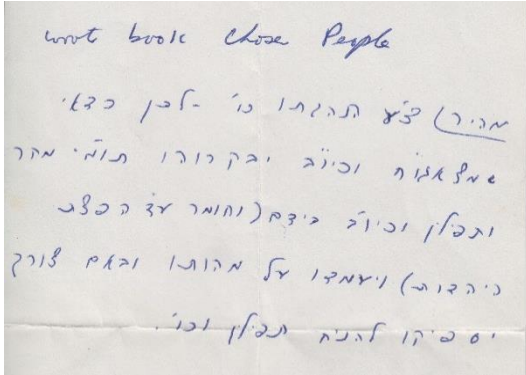 wrot book Chose People
מהיר) צ"ע כו' - לכן כדאי
שמצאגו"ח וכיו"ב יבקרוהו תומ"י מהר
ותפילין וכיו"ב בידם (וחומר ע"ד הפצת
היהדות) ויעמדו על מהותו ובאם צורך
יספיקו להניח תפילין וכו'.